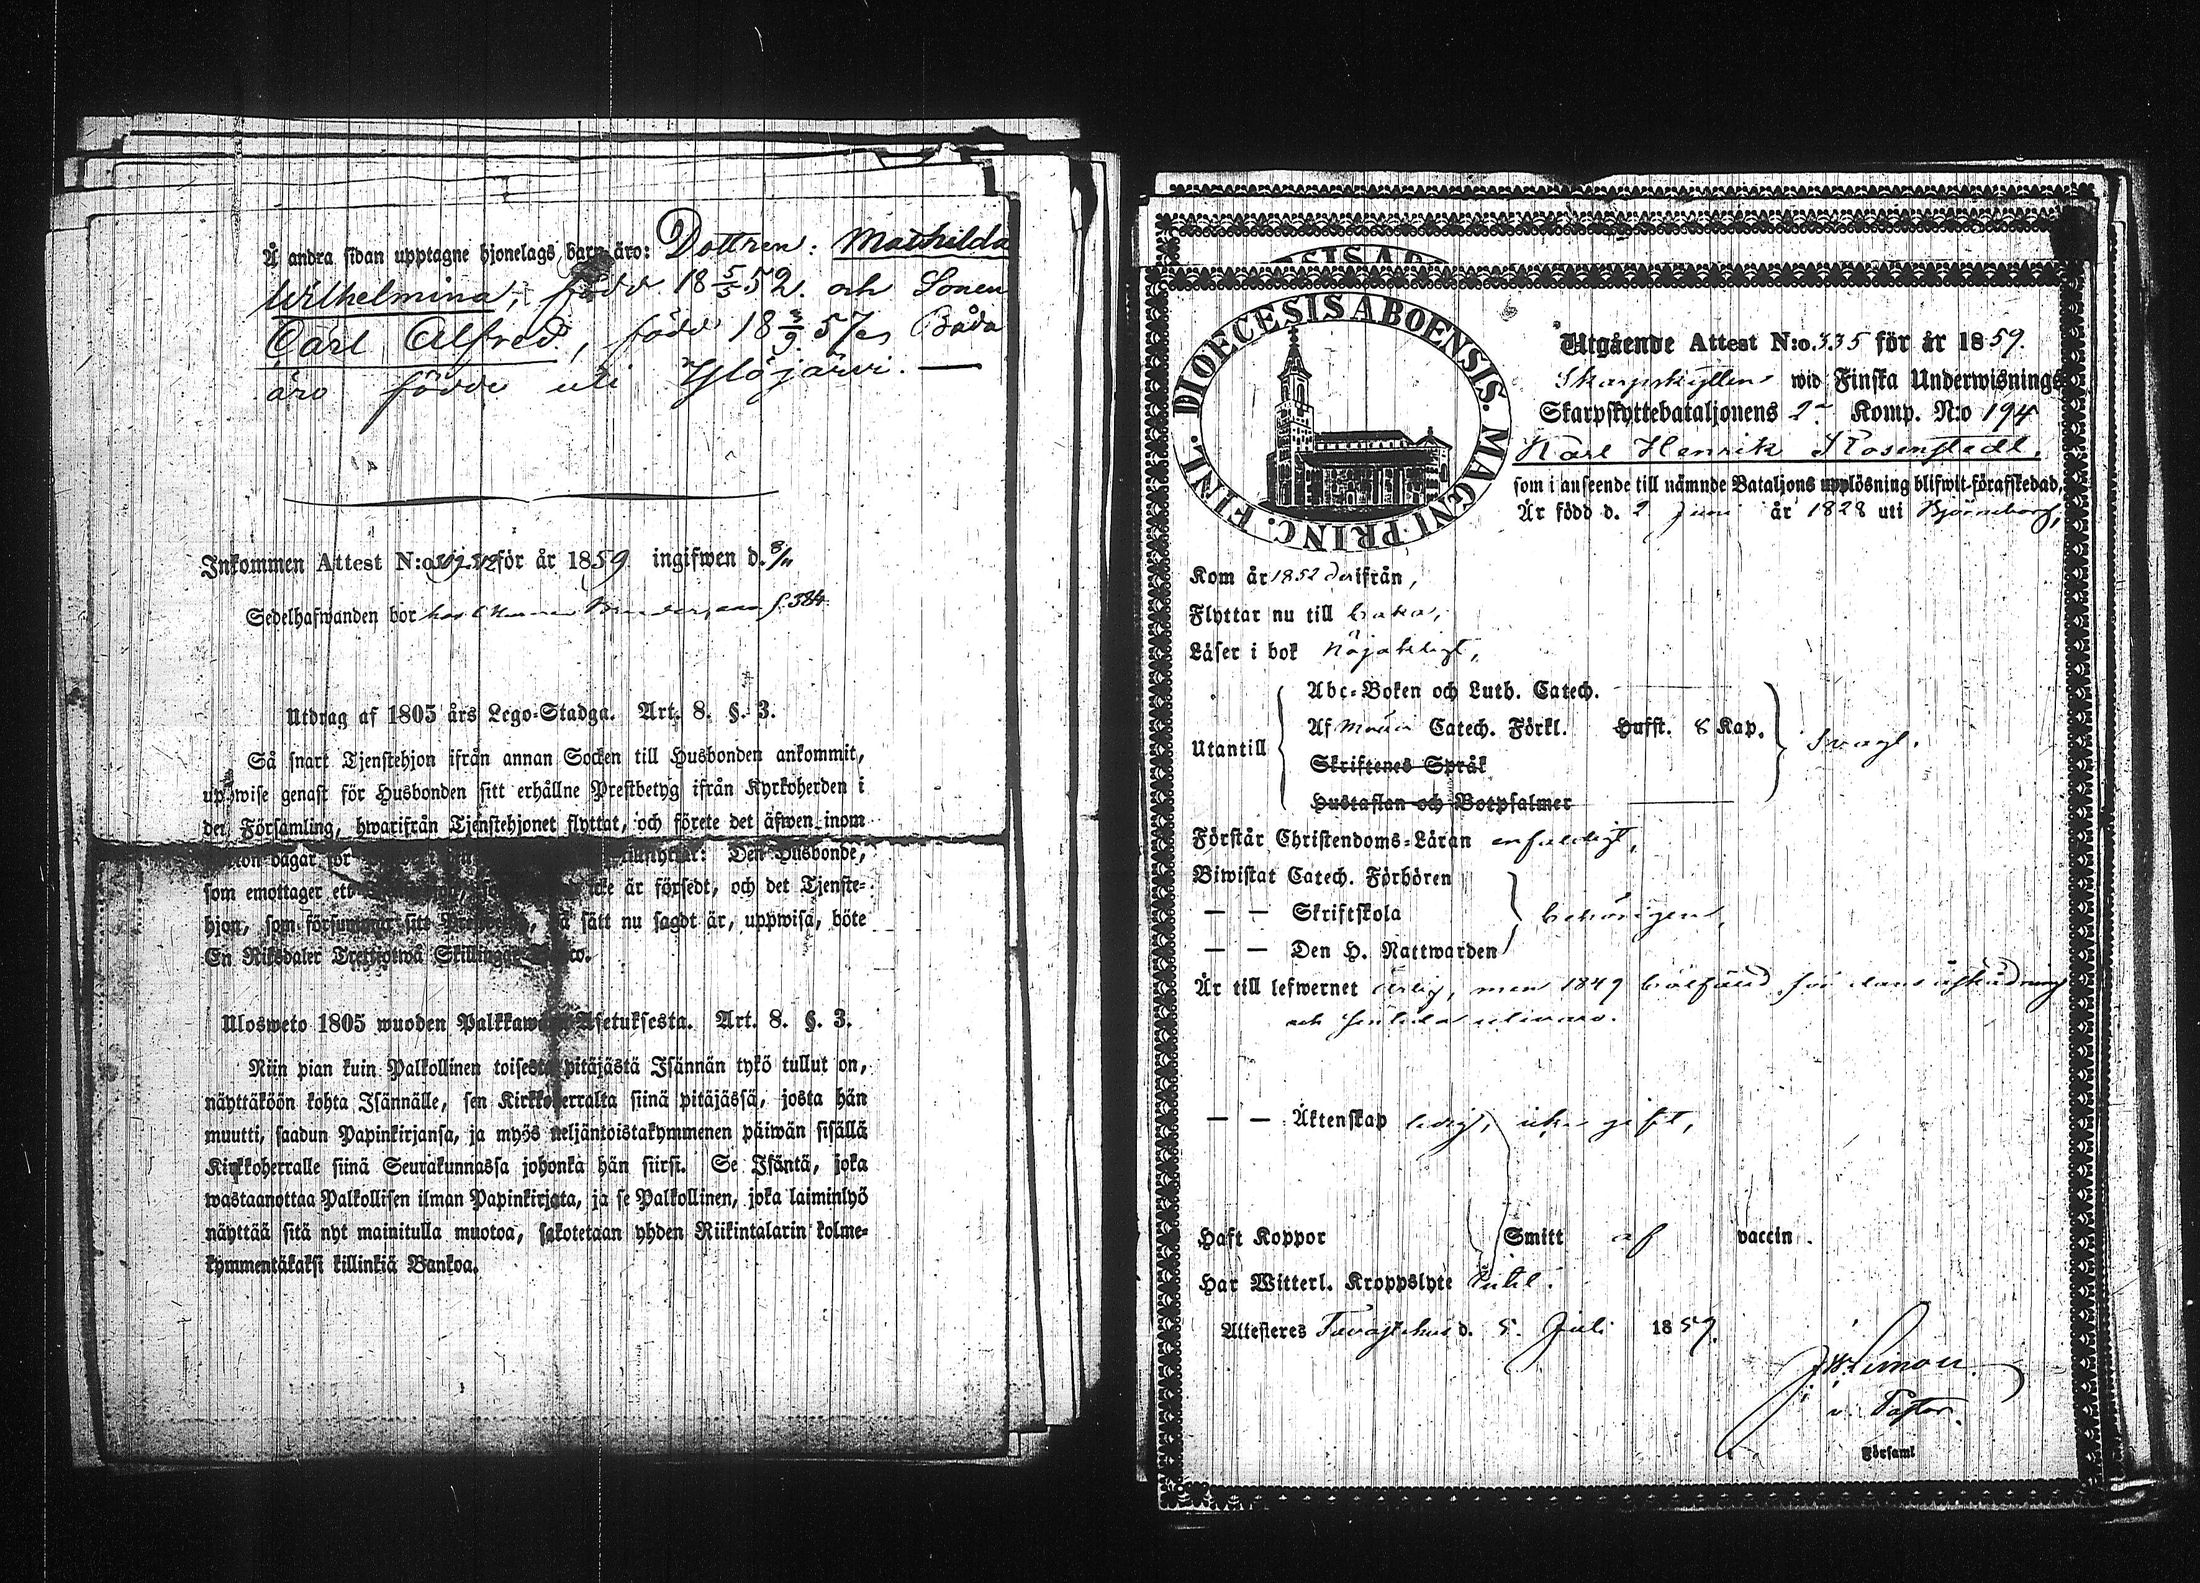 Å andra sidan upptagne hjonelags barn äro: Dottren: Mathilda
Wilhelmina, född 18 5/5 52. och Sonen
Carl Alfred, född 18 3/9 57. Båda
äro födde uti Ylöjärvi. —
Inkommen Attest N:o för år 1859 ingifwen d. 8/11
Sedelhafwanden bor hos f. 384.
Utdrag af 1805 års Lego-Stadga. Art. 8. §. 3.
Så snart Tjenstehjon ifrån annan Socken till Husbonden ankommit,
uppwise genast för Husbonden sitt erhållne Prestbetyg ifrån Kyrkoherden i
den Församling, hwarifrån Tjenstehjonet flyttat, och förete det äfwen inom
dagar för Den Husbonde,
som emottager ett icke är försedt, och det Tjenste-
hjon, som försummar sitt sätt nu sagdt är, uppwisa, böte
En Riksdaler Trettiotwå Skillingar
Ulosweto 1805 wuoden Asetuksesta. Art. 8. §. 3.
Niin pian kuin Palkollinen toisesta pitäjästä Isännän tykö tullut on,
näyttäköön kohta Isännälle, sen Kirkkoherralta siinä pitäjässä, josta hän
muutti, saadun Papinkirjansa, ja myös neljäntoistakymmenen päiwän sisällä
Kirkkoherralle siinä Seurakunnassa johonka hän siirsi. Se Isäntä, joka
wastaanottaa Palkollisen ilman Papinkirjata, ja se Palkollinen, joka laiminlyö
näyttää sitä nyt mainitulla muotoa, sakotetaan yhden Riikintalarin kolme-
kymmentäkaksi killinkiä Bankoa.
FINL. DIOECESIS ABOENSIS. MAGNI PRINC.
Utgående Attest N:o 335 för år 1859.
Skarpskytten wid Finska Underwisnings
Skarpskyttebataljonens 2a Komp. N:o 194
Karl Henrik Rosenstedt,
som i anseende till nämnde Bataljons upplösning blifwit förafskedad,
Är född d. 2 Juni år 1828 uti Björneborg,
Kom år 1852 derifrån,
Flyttar nu till
Läser i bok Nöjaktligt,
Utantill
Abc-Boken och Luth. Catech.
Af Catech. Förkl. Hufst. 8 Kap.
Skriftenes Språk
Hustaflan och Botpsalmer
Svagt.
Förstår Christendoms-Läran enfaldigt,
Biwistat Catech. Förhören
— — Skriftskola
— — Den H. Nattwarden
behörigen,
Är till lefwernet ärlig, men 1849
och
— — Äktenskap ledig, icke gift,
Haft Koppor Smitt af vaccin.
Har Witterl. Kroppslyte
Attesteres Tavastehus d. 5. Juli 1859.
v. Pastor.
Församl